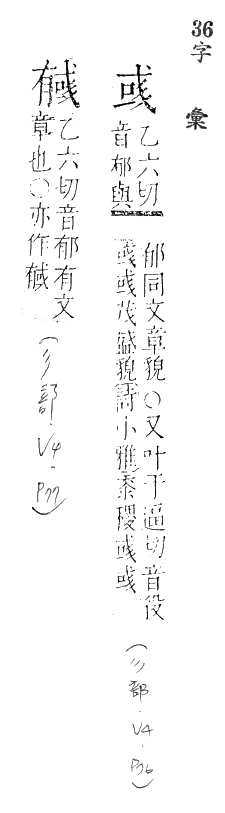 36
字彙
彧
乙六切
音郁與
郁同文章貌○又叶于逼切音役
彧彧茂盛貌詩小雅黍稷彧彧
(彡部.V4.P76)
乙六切音郁有文
章也○亦作戫
(彡部.V4.P77)